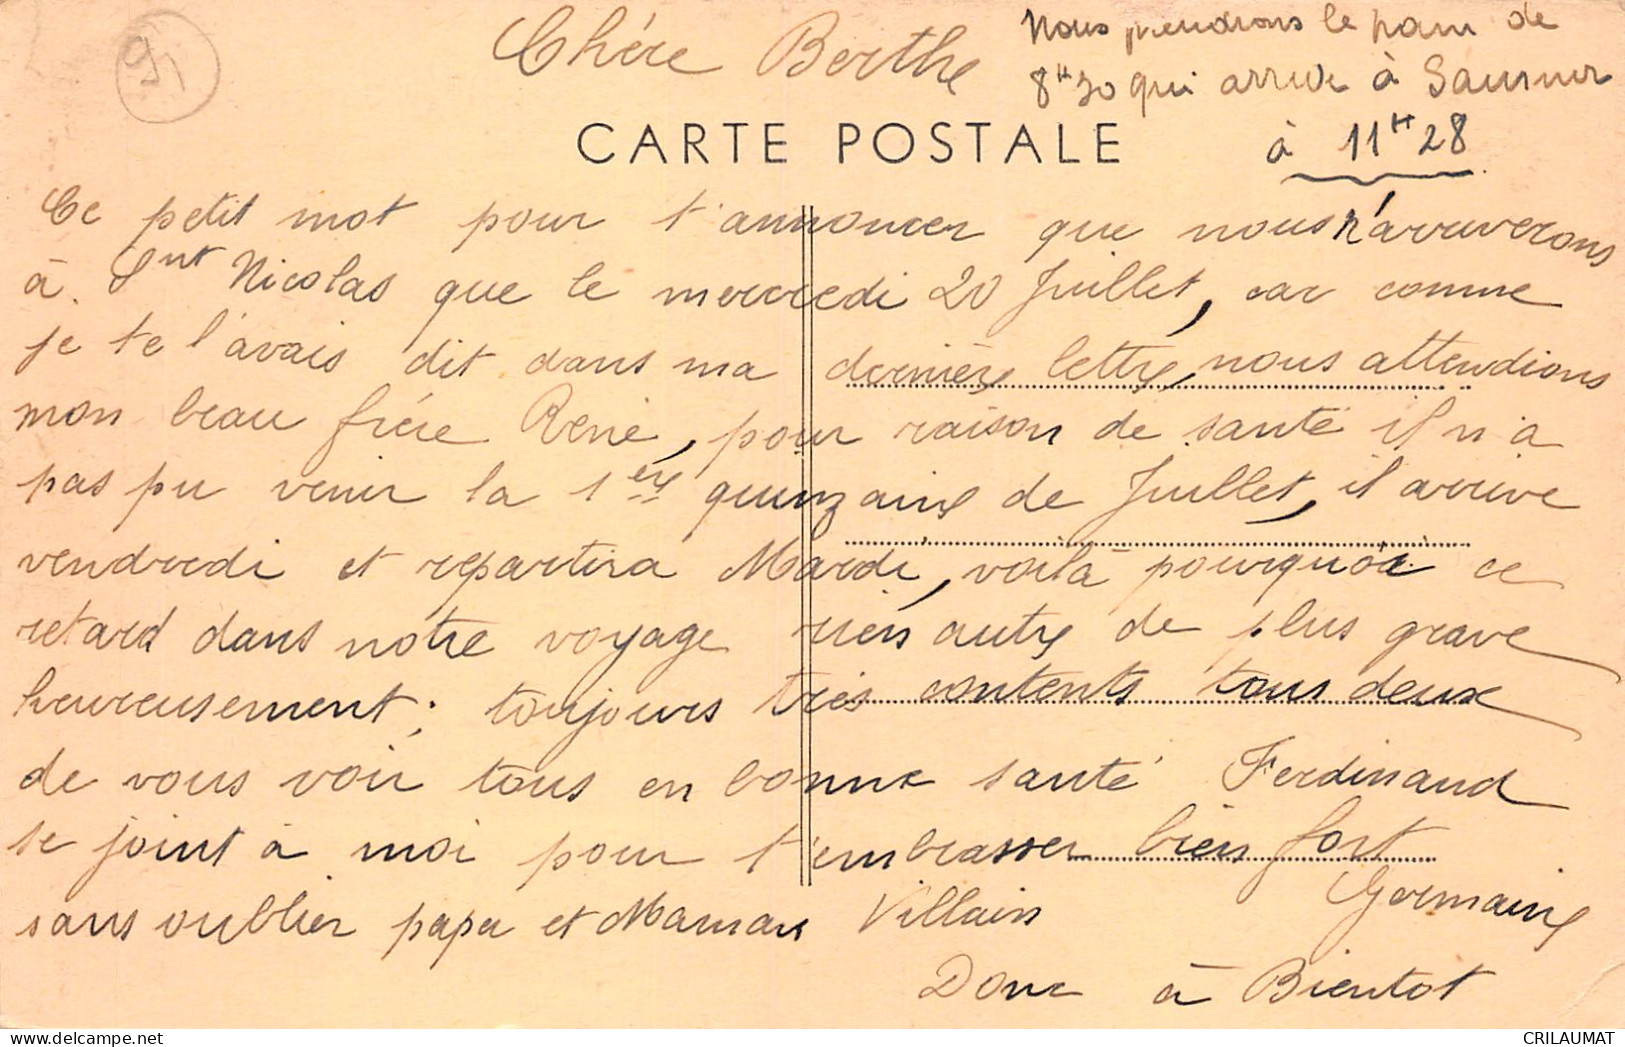 Chére Berthe
Nous prendrons le
8H30 qui arrive à Saumur
à 11H28
CARTE POSTALE
Ce petit mot pour t'annoncer que nous n'arriverons
à Snt Nicolas que le mercredi 20 Juillet, car comme
je te l'avais dit dans ma dernière lettre, nous attendions
mon beau frére René, pour raison de santé il n'a
pas pu venir la 1ère quinzaine de Juillet, il arrive
vendredi et repartira Mardi, voilà pourquoi ce
retard dans notre voyage rien autre de plus grave
heureusement; toujours très contents tous deux
de vous voir tous en bonne santé Ferdinand
se joint à moi pour t'embrasser bien fort
sans oublier papa et Maman Villain Germaine
Donc à Bientot
CRILAUMAT